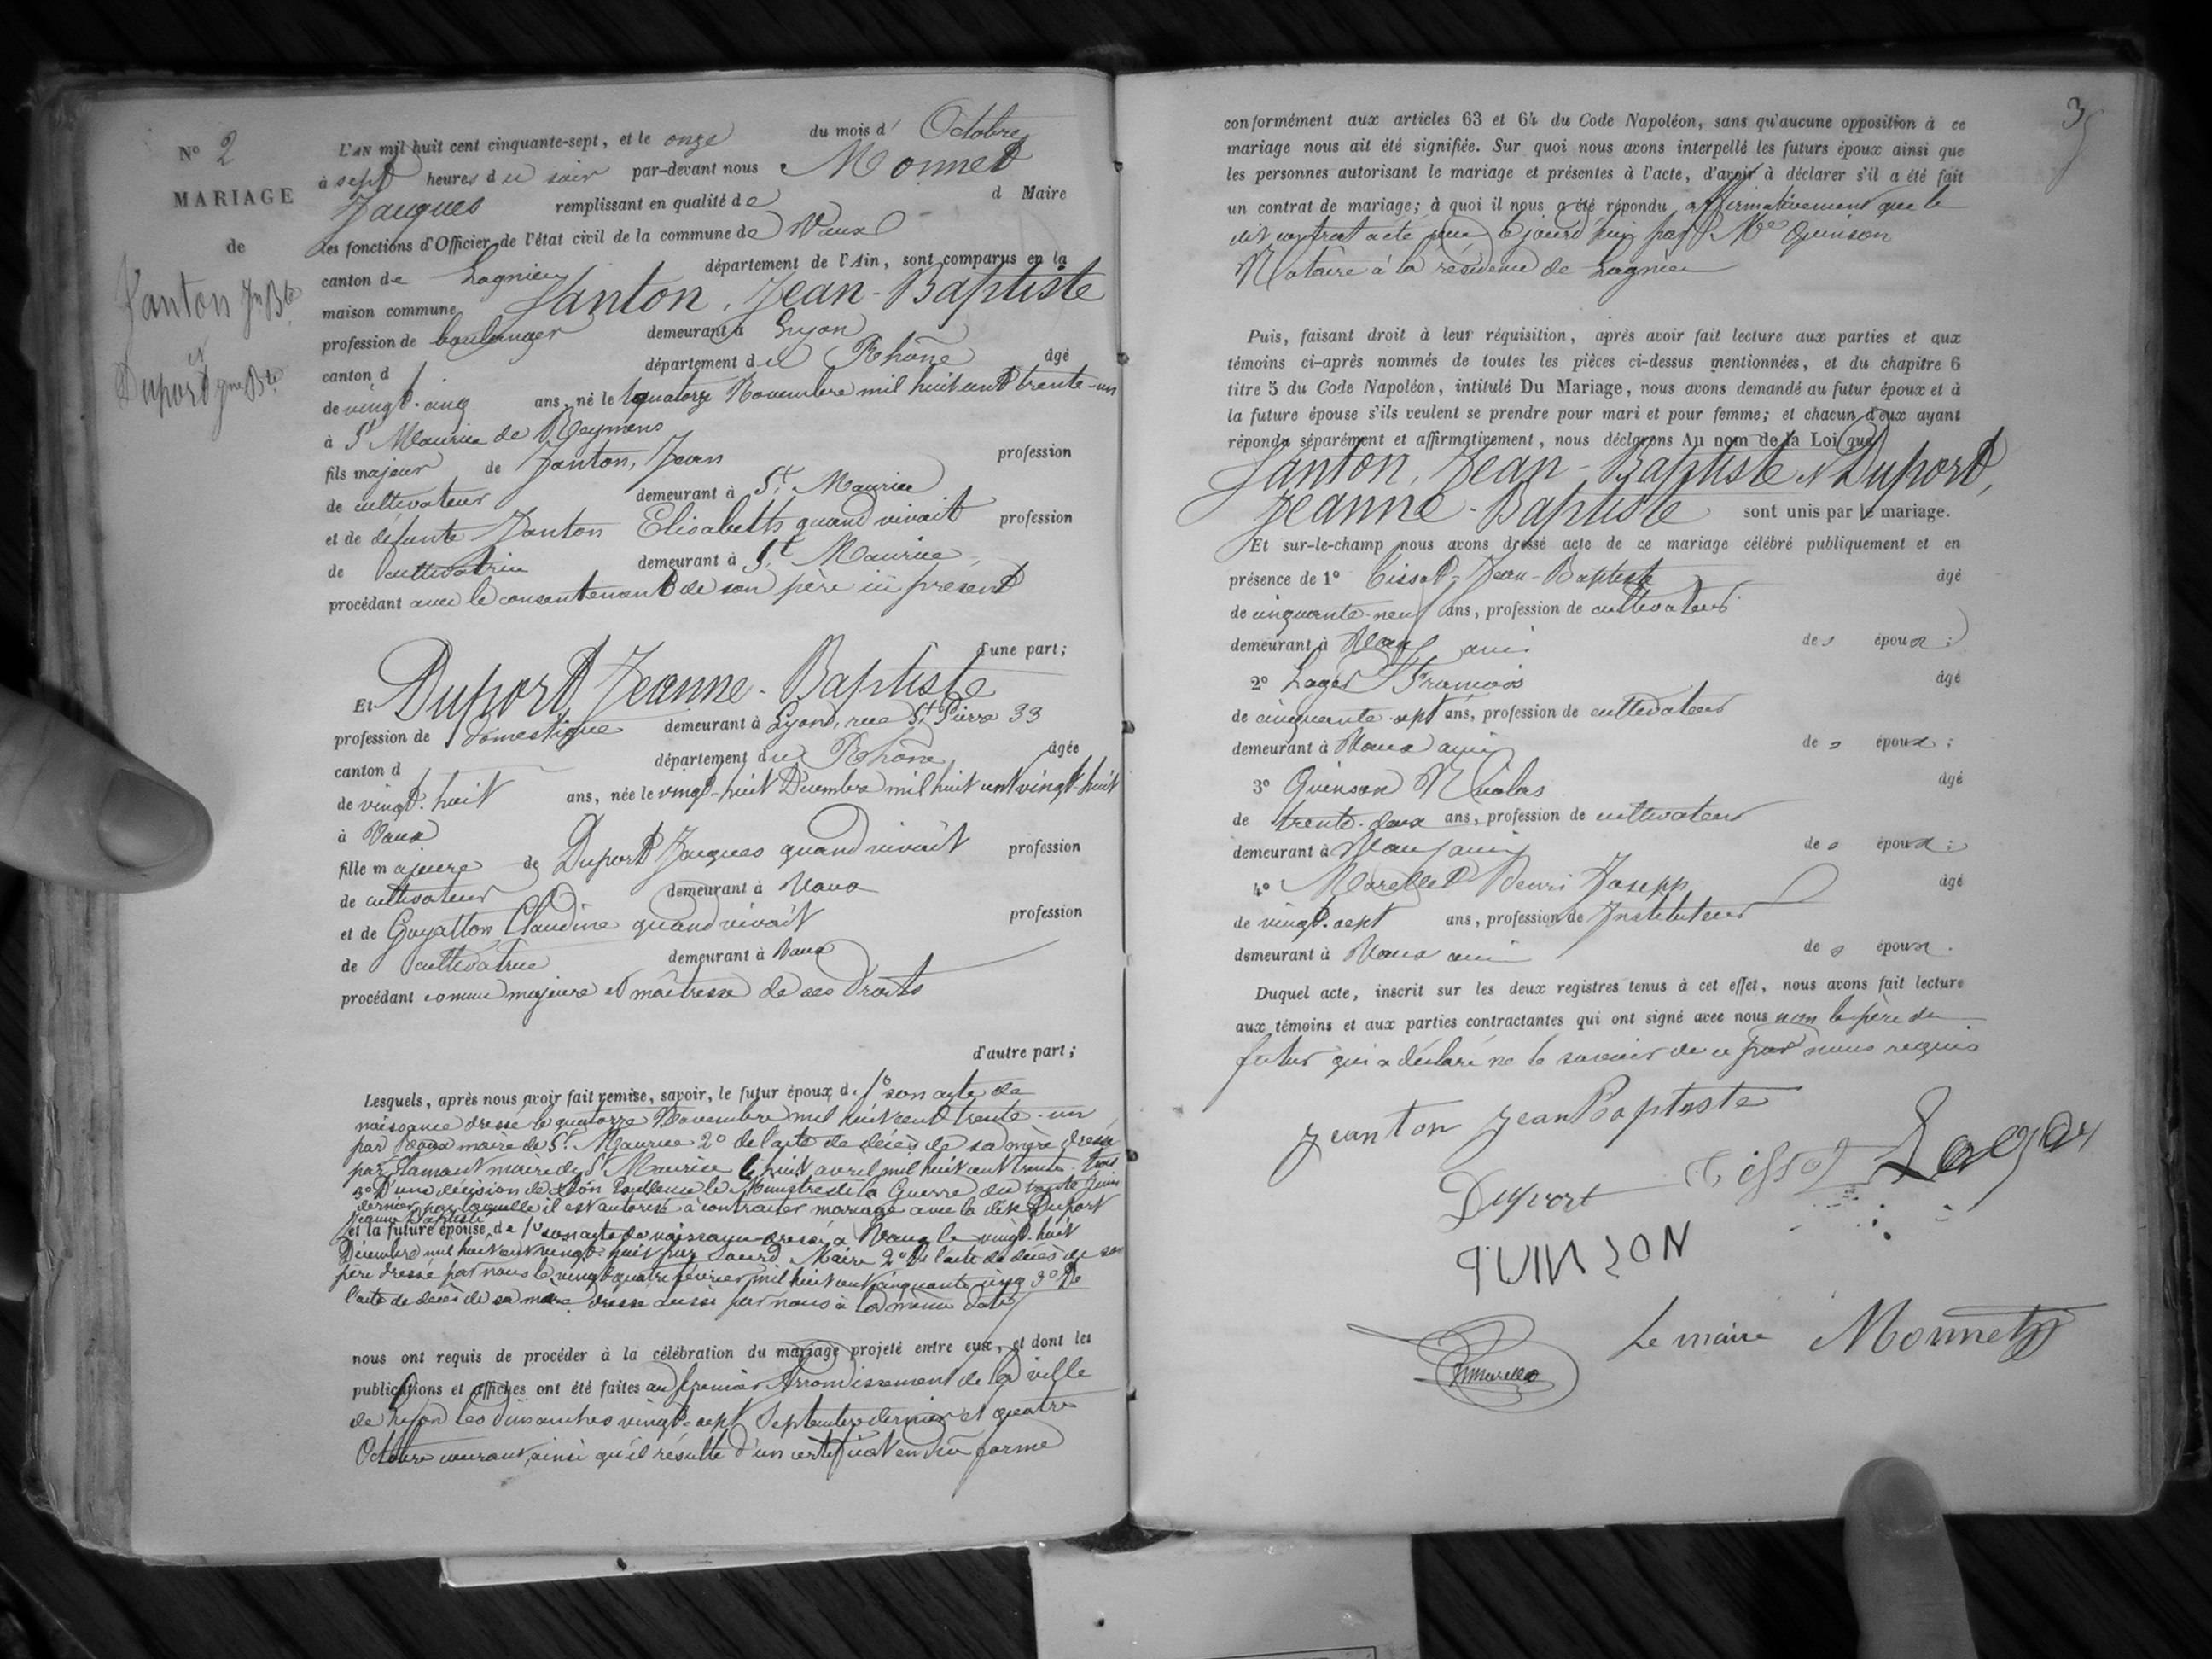 N° 2
MARIAGE
de
Janton Jn Bte
et
Duport Jne Bte
L'AN mil huit cent cinquante-sept, et le onze du mois d' Octobre
à sept heures du soir par-devant nous Monnet
Jacques remplissant en qualité de d Maire
les fonctions d'Officier de l'état civil de la commune de Vaux
canton de Lagnieu département de l'Ain, sont comparus en la
maison commune Janton, Jean-Baptiste
profession de boulanger demeurant à Lyon
canton d département du Rhône âgé
de vingt-cinq ans, né le quatorze Novembre mil huit cent trente-un
à St Maurice de Reymens
fils majeur de Janton, Jean profession
de cultivateur demeurant à St Maurice
et de défunte Janton Elisabeth quand vivait profession
de cultivatrice demeurant à St Maurice
procédant avec le consentement de son père ici présent
d'une part;
Et Duport Jeanne-Baptiste
profession de domestique demeurant à Lyon, rue St Pierre 33
canton d département du Rhône âgée
de vingt-huit ans, née le vingt-huit Décembre mil huit cent vingt-huit
à Vaux
fille majeure de Duport Jacques quand vivait profession
de cultivateur demeurant à Vaux
et de Goyatton Claudine quand vivait profession
de cultivatrice demeurant à Vaux
procédant comme majeure et maîtresse de ses droits
d'autre part;
Lesquels, après nous avoir fait remise, savoir, le futur époux de 1° son acte de
naissance dressé le quatorze Novembre mil huit cent trente-un
par maire de St Maurice 2° de l'acte de décès de sa mère dressé
par maire de St Maurice le huit avril mil huit cent trente-trois
3° D'une décision de Son Excellence le Ministre de la Guerre du trente Juin
dernier par laquelle il est autorisé à contracter mariage avec la dite Duport
Jeanne Baptiste
et la future épouse de 1° son acte de naissance dressé à Vaux le vingt-huit
Décembre mil huit cent vingt-huit par Maire 2° De l'acte de décès de son
père dressé par nous le vingt quatre février mil huit cent cinquante cinq 3° De
l'acte de décès de sa mère dressé aussi par nous à la même date
nous ont requis de procéder à la célébration du mariage projeté entre eux, et dont les
publications et affiches ont été faites au premier Arrondissement de la ville
de Lyon les Dimanches vingt-sept Septembre dernier et quatre
Octobre courant, ainsi qu'il résulte d'un certificat en dûe forme
3
conformément aux articles 63 et 64 du Code Napoléon, sans qu'aucune opposition à ce
mariage nous ait été signifiée. Sur quoi nous avons interpellé les futurs époux ainsi que
les personnes autorisant le mariage et présentes à l'acte, d'avoir à déclarer s'il a été fait
un contrat de mariage; à quoi il nous a été répondu affirmativement que le
dit contrat a été reçu ce jourd'hui par Me Quinson
Notaire à la résidence de Lagnieu
Puis, faisant droit à leur réquisition, après avoir fait lecture aux parties et aux
témoins ci-après nommés de toutes les pièces ci-dessus mentionnées, et du chapitre 6
titre 5 du Code Napoléon, intitulé Du Mariage, nous avons demandé au futur époux et à
la future épouse s'ils veulent se prendre pour mari et pour femme; et chacun d'eux ayant
répondu séparément et affirmativement, nous déclarons Au nom de la Loi que
Janton, Jean-Baptiste et Duport,
Jeanne-Baptiste sont unis par le mariage.
Et sur-le-champ nous avons dressé acte de ce mariage célébré publiquement et en
présence de 1° Tissot Jean-Baptiste âgé
de cinquante-neuf ans, profession de cultivateur
demeurant à Vaux ami des époux;
2° Lager François âgé
de cinquante-sept ans, profession de cultivateur
demeurant à Vaux ami des époux;
3° Quinson Nicolas âgé
de trente-deux ans, profession de cultivateur
demeurant à Vaux ami des époux;
4° Marellet Henri Joseph âgé
de vingt-sept ans, profession de Instituteur
demeurant à Vaux ami des époux.
Duquel acte, inscrit sur les deux registres tenus à cet effet, nous avons fait lecture
aux témoins et aux parties contractantes qui ont signé avec nous non le père du
futur qui a déclaré ne le savoir de ce par nous requis
Jeanton Jean Baptiste
Duport Tissot Lager
QUINSON
Le maire Monnet